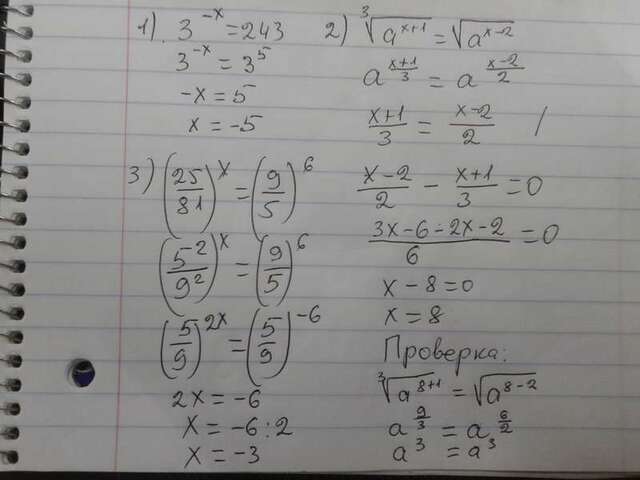 1). 3^{-x} = 243
3^{-x} = 3^5
-x = 5
x = -5
2) ∛(a^{x+1}) = √(a^{x-2})
a^{(x+1)/3} = a^{(x-2)/2}
(x+1)/3 = (x-2)/2 /
(x-2)/2 - (x+1)/3 = 0
(3x-6-2x-2)/6 = 0
x - 8 = 0
x = 8
Проверка:
∛(a^{8+1}) = √(a^{8-2})
a^{9/3} = a^{6/2}
a^3 = a^3
3) (25/81)^x = (9/5)^6
(5^2/9^2)^x = (9/5)^6
(5/9)^{2x} = (5/9)^{-6}
2x = -6
x = -6:2
x = -3